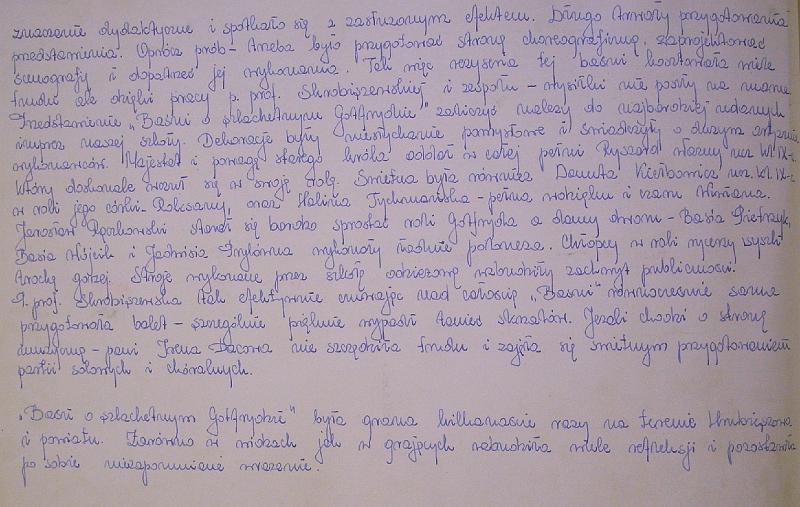 znaczenie dydaktyczne i spotkało się z zasłużonym efektem. Długo trwały przygotowania
przedstawienia. Oprócz prób - trzeba było przygotować stronę choreograficzną, zaprojektować
scenografię i dopatrzeć jej wykonania. Tak więc reżyseria tej baśni kosztowała wiele
trudu ale dzięki pracy p. prof. Skrobiszewskiej i zespołu - wysiłki nie poszły na marne.
Przedstawienie "Baśni o szlachetnym Gotfrydzie" zaliczyć należy do najbardziej udanych
imprez naszej szkoły. Dekoracje były niesłychanie pomysłowe i świadczyły o dużym
wykonawców. Majestat i powagę starego króla oddał w całej pełni Ryszard ucz. kl. IX-c
który doskonale wczuł się w swoją rolę. Świetna była również Danuta ucz. kl. IX-c
w roli jego córki - Roksany, oraz Halina Tychmańska - pełna wdzięku i czaru
Jarosław starał się bardzo sprostać roli Gotfryda a damy dworu - Basia Pietrzyk,
Basia Wójcik i Jadwisia wykonały ładnie poloneza. Chłopcy w roli rycerzy wyszli
trochę gorzej. Stroje wykonane przez szkołę odzieżową wzbudziły zachwyt publiczności.
P. prof. Skrobiszewska tak efektywnie czuwając nad całością "Baśni" równocześnie sama
przygotowała balet - szczególnie pięknie wypadł taniec skrzatów. Jeżeli chodzi o stronę
muzyczną - pani Irena Dacowa nie szczędziła trudu i zajęła się świetnym przygotowaniem
partii solowych i chóralnych.
"Baśń o szlachetnym Gotfrydzie" była grana kilkanaście razy na terenie Hrubieszowa
i powiatu. Zarówno w widzach jak w grających wzbudziła wiele refleksji i pozostawiła
po sobie niezapomniane wrażenie.